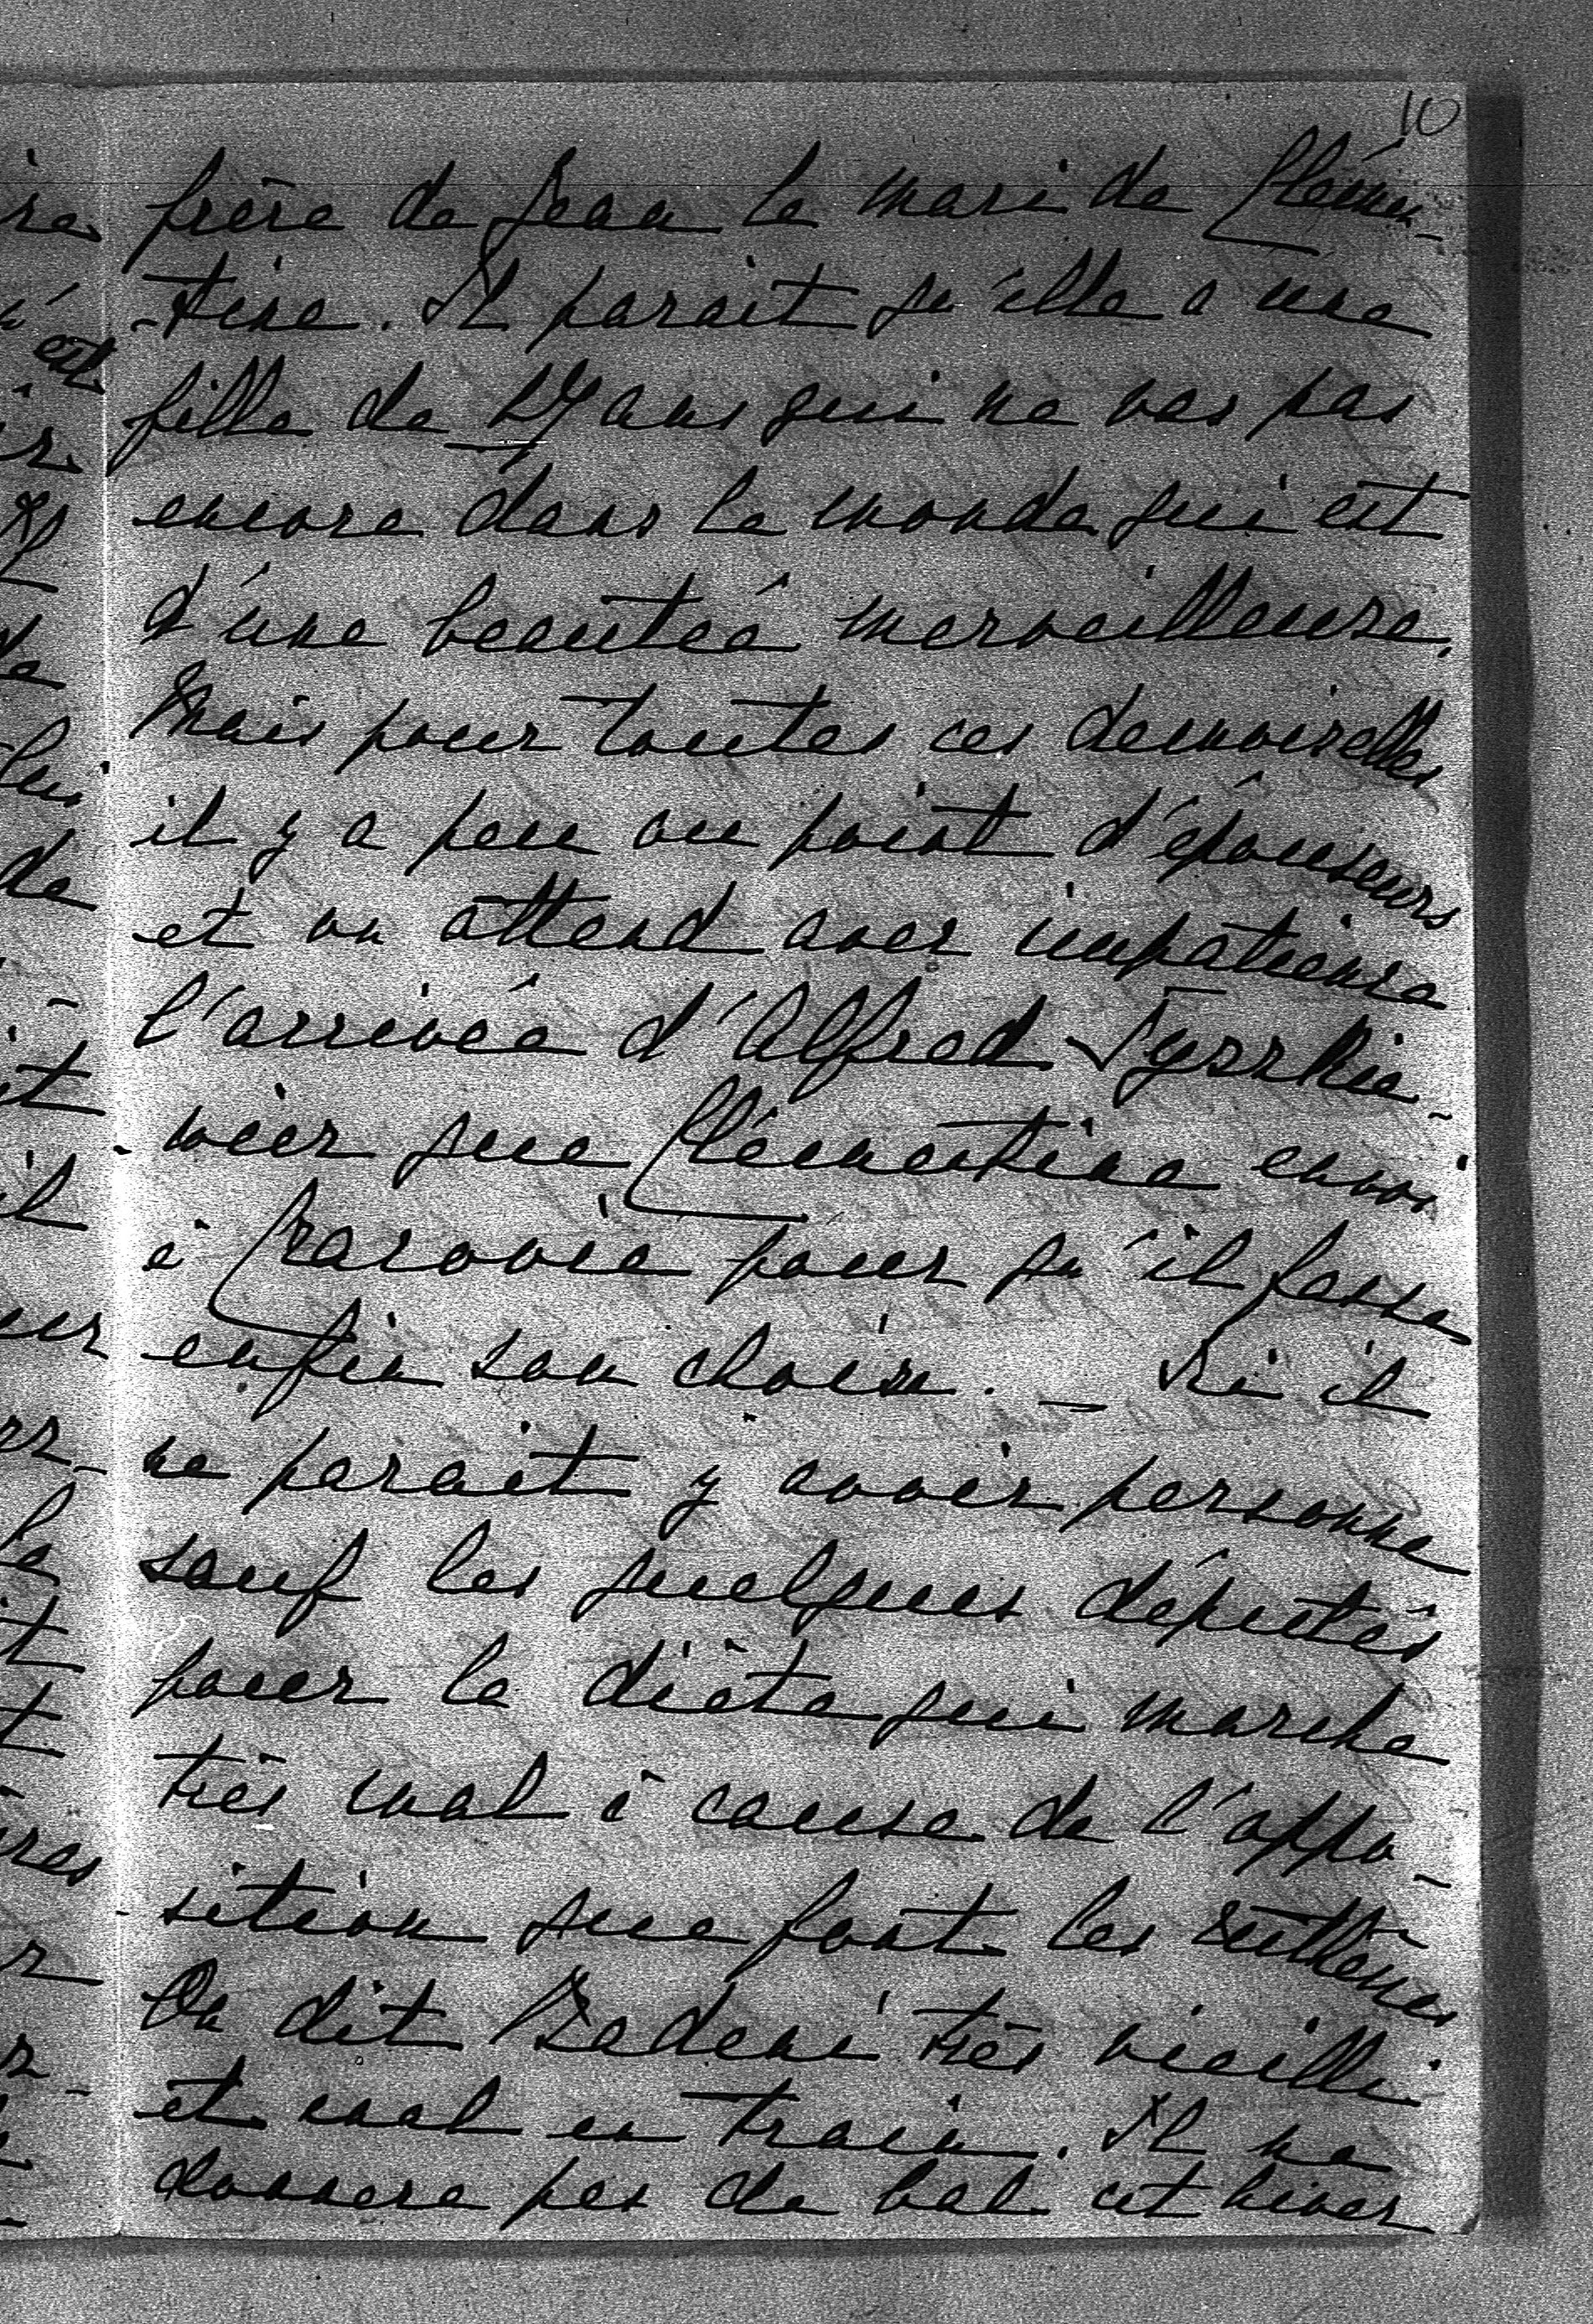 10
frère de Jean le mari de Clémen-
-tine. Il parait qu'elle a une
fille de 17 ans qui ne vas pas
encore dans le monde qui est
d'une beauteé merveilleuse.
Mais pour toutes ces demoiselles
il y a peu ou point d'épouseurs
et on attend avec impatience
l'arrivée d'Alfred Tyszkie-
-wicz que Clémentine envoi
à Cracovie pour qu'il fasse
enfin son choix. — Ici il
ne parait y avoir personne
sauf les quelques députés
pour la diète qui marche
très mal à cause de l'oppo-
-sition que font les ruthènes
On dit Badeni très vieilli
et mal en train. Il ne
donnera pas de bal cet hiver